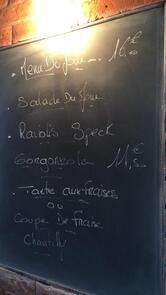 Menu Du Jour 16,€
Salade Du Jour
Raviolis Speck
Gorgonzola 11,50€
Tarte aux fraises
ou
Coupe De Fraise
Chantilly